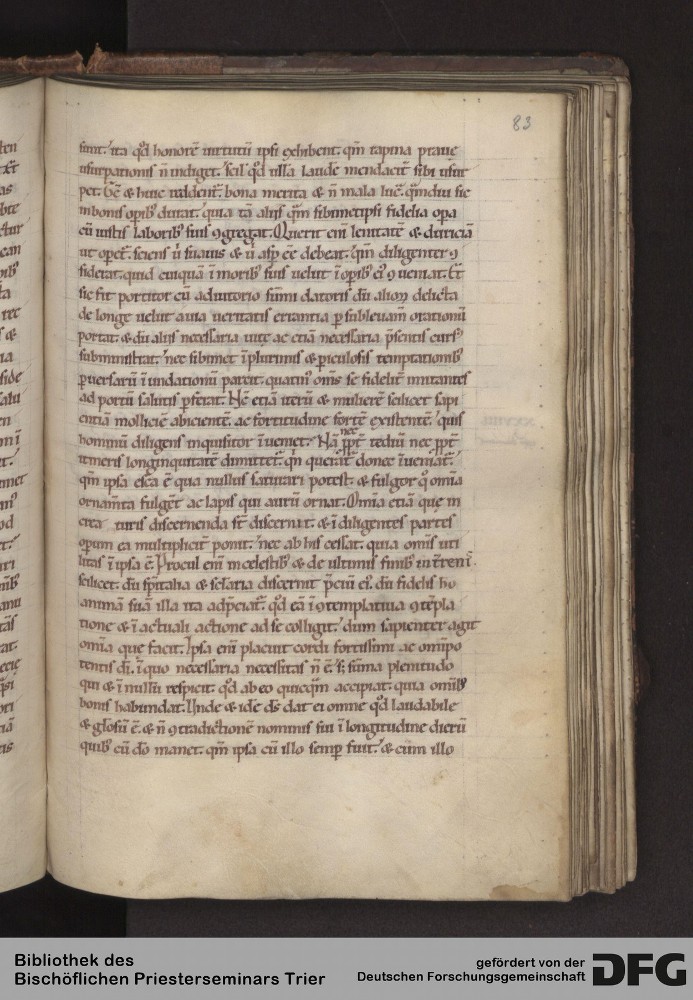 83
sunt. ita qđ honorē uirtutū ipsi exhibent. qm̄ rapina praue
usurpationis n̄ indiget. scil qđ ulla laude mendacit̄ sibi usur
pet. Vn̄ & huic reddent̄. bona merita & n̄ mala luē. quandiu sic
in bonis opib; durat. quia tā alijs quā sibimetipsi fidelia opa
cū iustis laborib; suis ꝯgregat. Querit eni lenitatē & duriciā
ut opet̄. sciens ū suauis & ū asp ēe debeat. qm̄ diligenter ꝯ
siderat. quid cuiquā ī morib; suis uelut ī opib; eiꝰ ꝯueniat. Et
sic fit portitor cū adiutorio sūmi datoris dū alioꝝ delicta
de longe uelut auia ueritatis errantia ꝑ subleuam̄ orationū
portat. & dū alijs necessaria uitę ac etiā necessaria p̄sentis cursꝰ
subministrat. nec sibimet ī plurimis & ꝑiculosis temptationib;
ꝑuersarū ī undationū parcit. quatinꝰ om̄s se fidelit̄ imitantes
ad portū salutis ꝑferat. Nē etiā iterū & mulierē scilicet sapi
entiā mollicię abicientē. ac fortitudine fortē existentē. quis
hominū diligens inquisitor īueniet. Nā nec ꝓpt̄ tediū nec ꝓpt̄
itineris longinquitatē dimittet̄. qn̄ querat̄ donec īueniat̄.
qm̄ ipsa esca ē qua nullus saturari potest & fulgor quo om̄ia
ornam̄ta fulgēt ac lapis qui aurū ornat. Om̄ia etiā que in
turis discernenda st̄ discernit. & ī diligentes partes
opum ea multiplicit̄ ponit. nec ab his cessat. quia om̄is uti
litas ī ipsa ē. Procul eni in celestib; & de ultimis finib;
scilicet. dū sp̄italia & sclaria discernit p̄ciū eiꝰ. dū fidelis ho
animā suā illa ita adp̄ciat̄. qđ eā ī ꝯtemplatiua ꝯtēpla
tione & ī actuali actione ad se colligit. dum sapienter agit
om̄ia que facit. Ipsa eni placuit cordi fortissimi ac om̄ipo
tentis dī. ī quo necessaria necessitas n̄ ē. s; sūma plenitudo
qui & ī nullū respicit. qđ ab eo quicqm̄ accipiat. quia om̄ib;
bonis habundat. Unde & idē ds̄ dat ei omne qđ laudabile
& gl̄osū ē. & n̄ ꝯtradictionē nominis sui ī longitudine dierū
quib; cū dō manet. qm̄ ipsa cū illo semꝑ fuit. & cum illo
Bibliothek des
Bischöflichen Priesterseminars Trier
gefördert von der
Deutschen Forschungsgemeinschaft
DFG